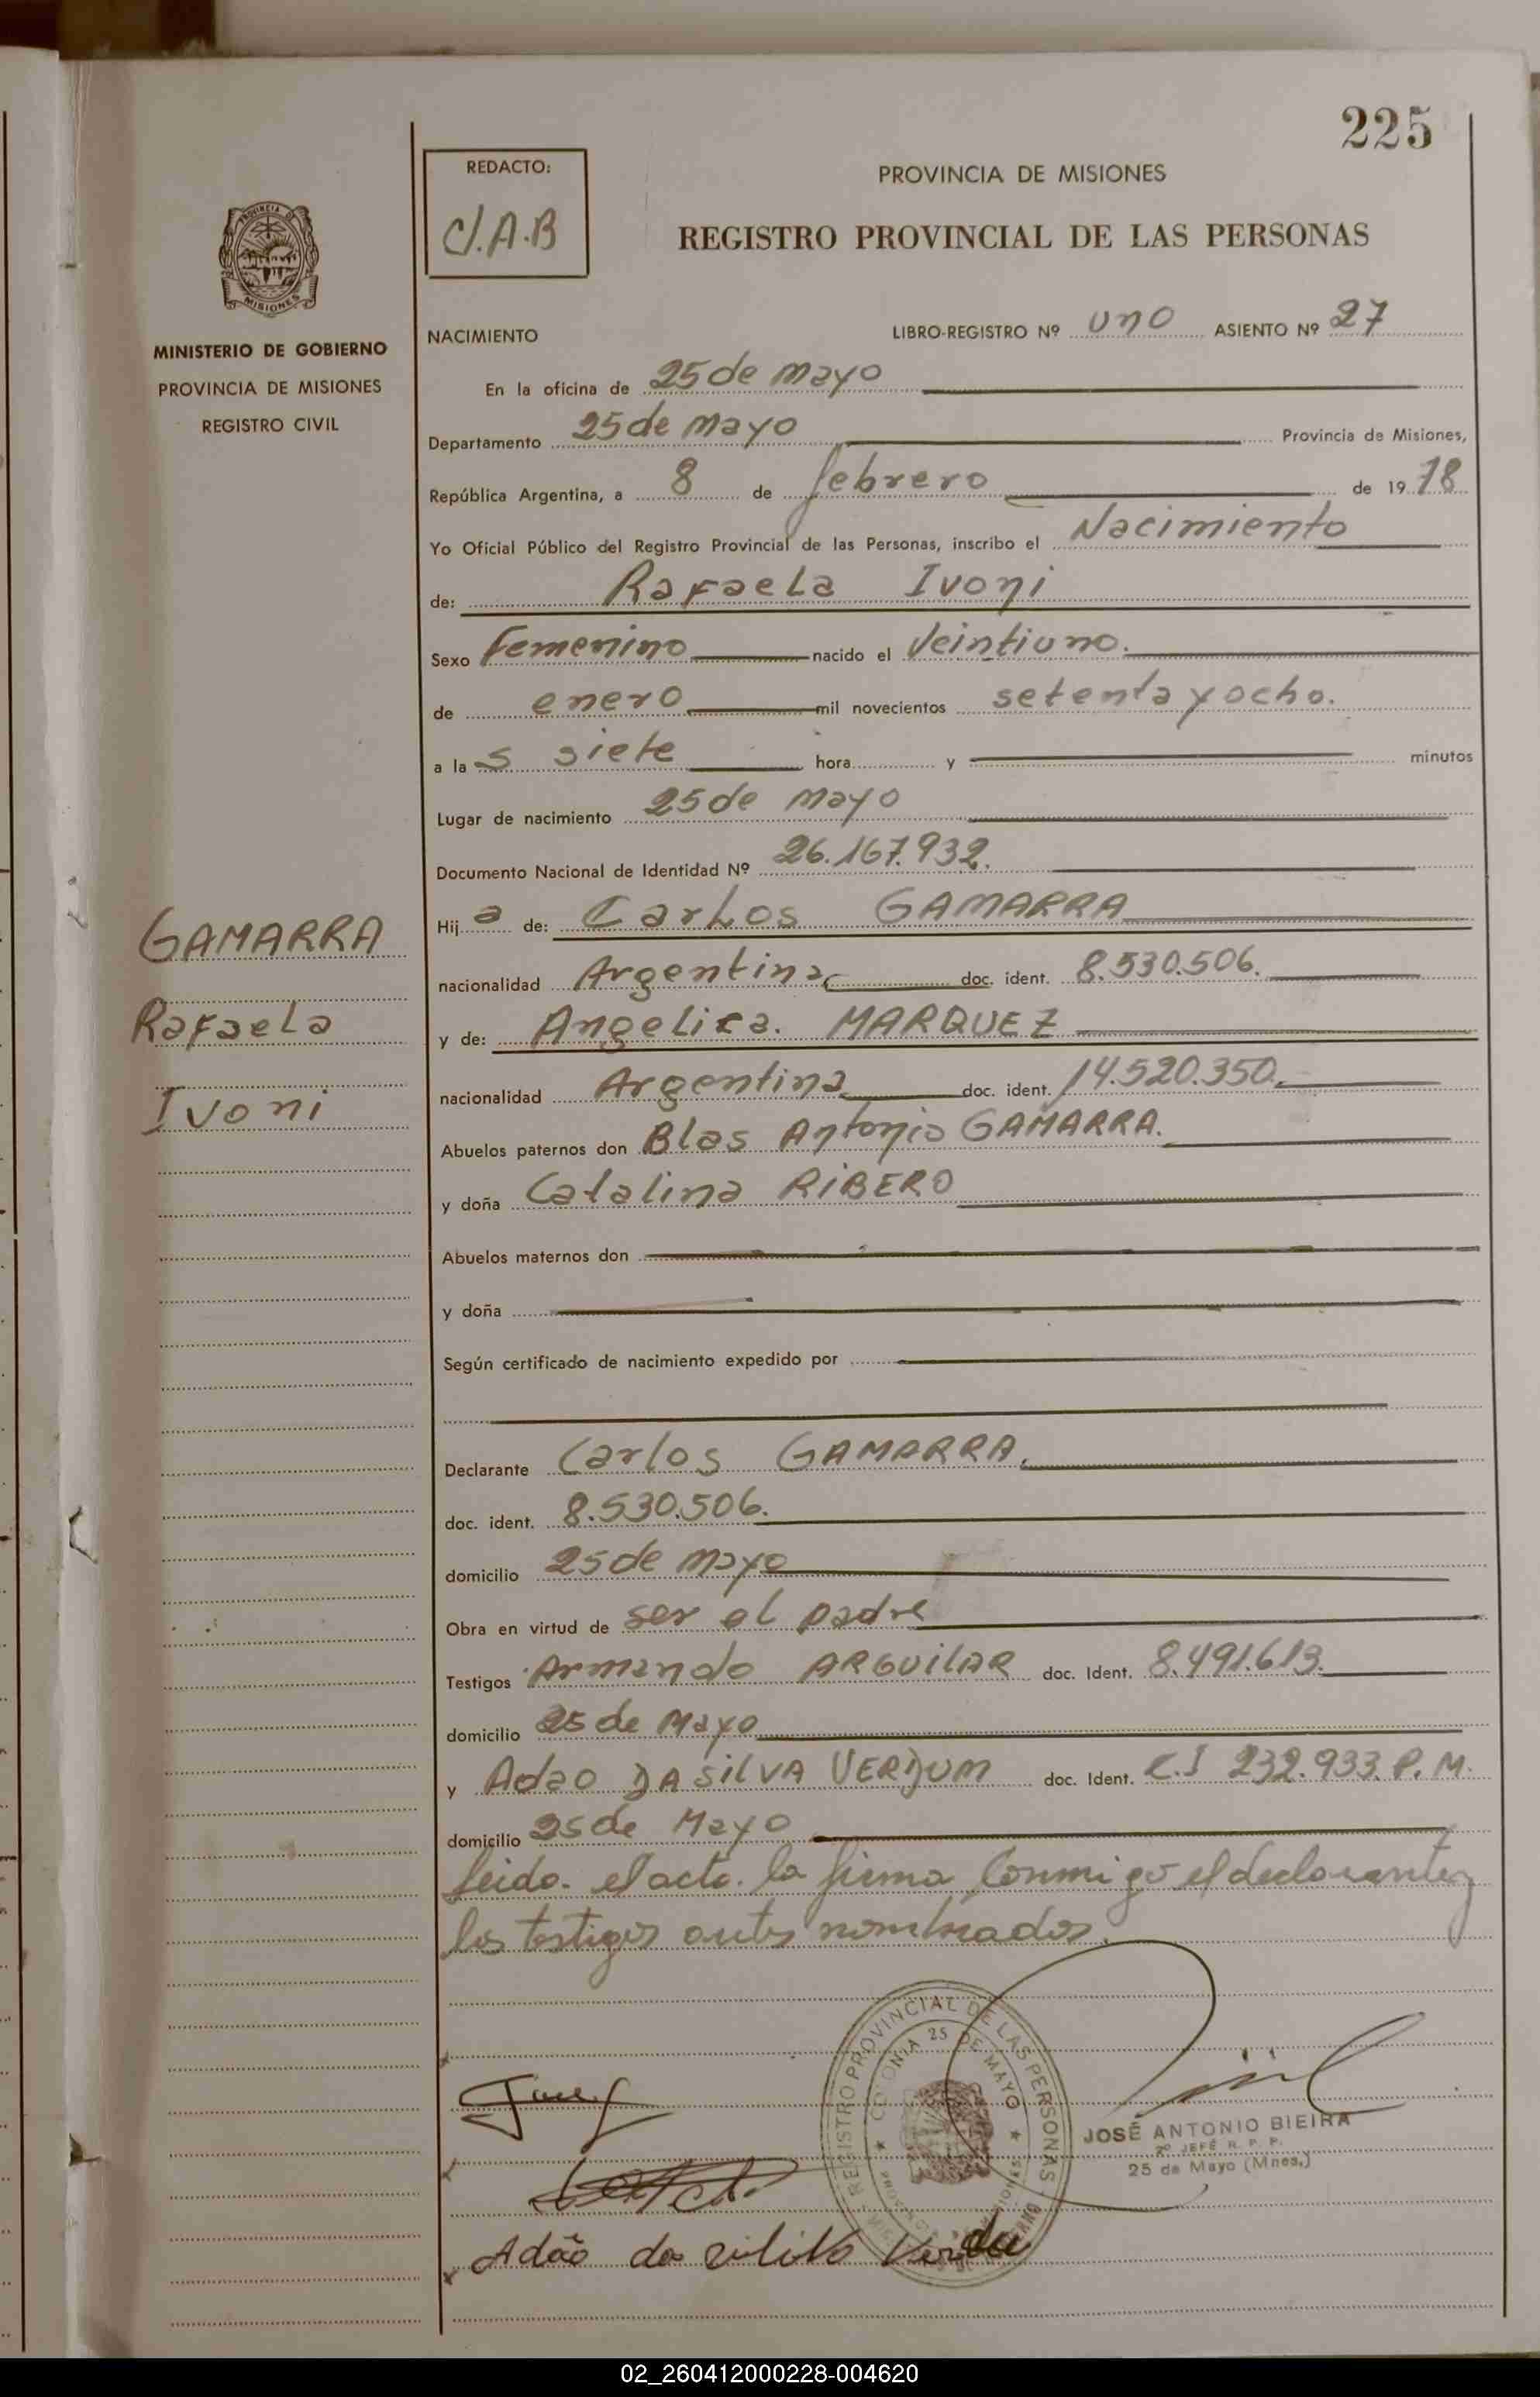 225
REDACTO:
C/.A.B
PROVINCIA DE MISIONES
REGISTRO PROVINCIAL DE LAS PERSONAS
PROVINCIA DE
MISIONES
MINISTERIO DE GOBIERNO
PROVINCIA DE MISIONES
REGISTRO CIVIL
NACIMIENTO LIBRO-REGISTRO Nº uno ASIENTO Nº 27
En la oficina de 25 de mayo
Departamento 25 de mayo Provincia de Misiones,
República Argentina, a 8 de febrero de 1978
Yo Oficial Público del Registro Provincial de las Personas, inscribo el Nacimiento
de: Rafaela Ivoni
Sexo Femenino nacido el Veintiuno.
de enero mil novecientos setenta y ocho.
a las siete hora y minutos
Lugar de nacimiento 25 de mayo
Documento Nacional de Identidad Nº 26.167.932.
Hija de: Carlos GAMARRA
nacionalidad Argentina doc. ident. 8.530.506.
y de: Angelica. MARQUEZ
nacionalidad Argentina doc. ident. 14.520.350.
Abuelos paternos don Blas Antonio GAMARRA.
y doña Catalina RIBERO
Abuelos maternos don
y doña
Según certificado de nacimiento expedido por
Declarante Carlos GAMARRA.
doc. ident. 8.530.506.
domicilio 25 de mayo
Obra en virtud de ser el padre
Testigos Armando ARGUILAR doc. Ident. 8.491.613.
domicilio 25 de Mayo
y Adao DA SILVA VERDUM doc. Ident. C.I 232.933. P.M.
domicilio 25 de Mayo
leido. el acto. la firma Conmigo el declarante y
los testigos antes nombrados.
GAMARRA
Rafaela
Ivoni
REGISTRO PROVINCIAL DE LAS PERSONAS
COLONIA 25 DE MAYO
JOSÉ ANTONIO BIEIRA
2º JEFE R. P. P.
25 de Mayo (Mnes.)
Adão da silva
02_260412000228-004620